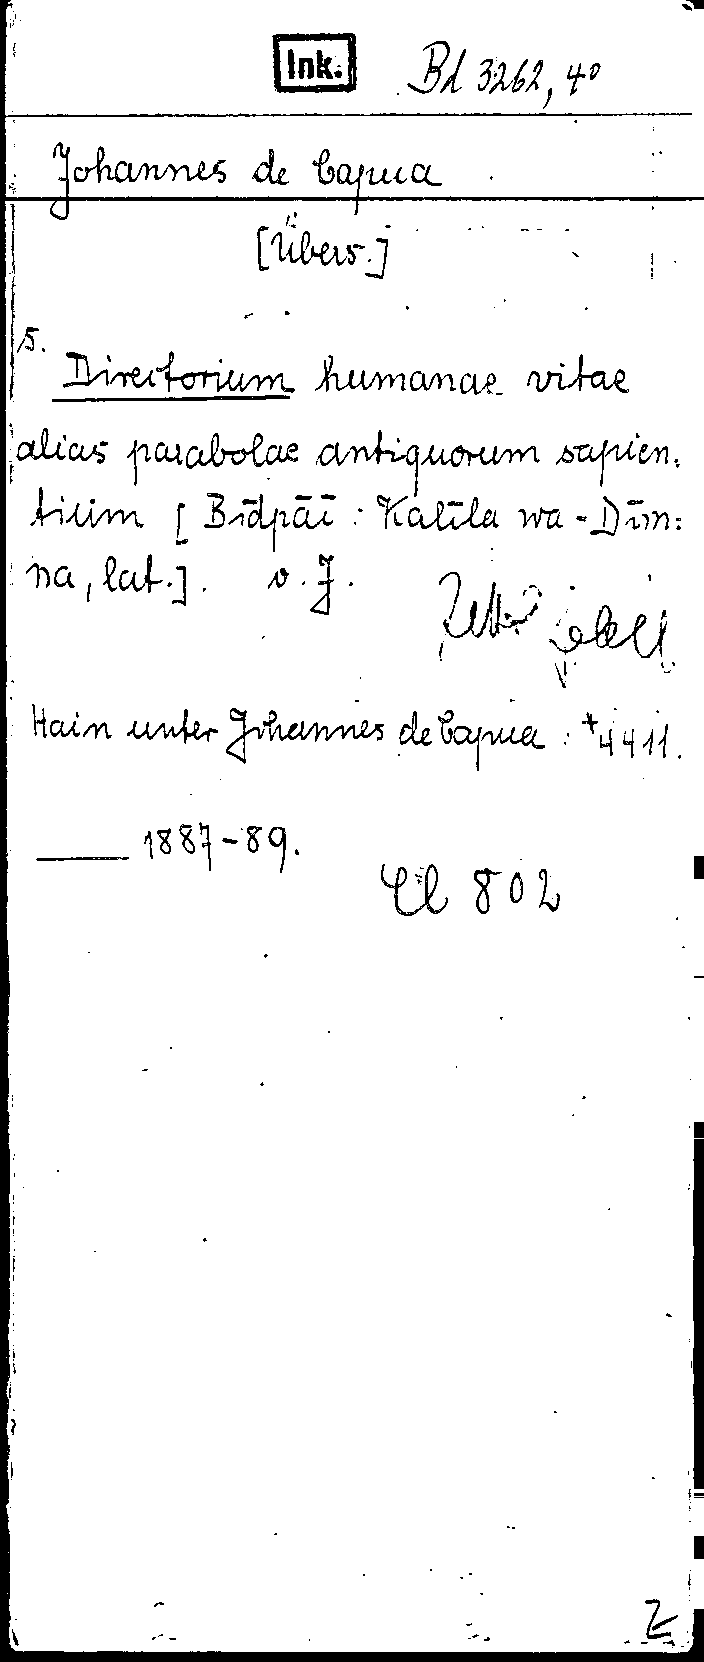 Ink. Bd 3262, 4°
Johannes de Capua
[Übers.]
5.
Directorium humanae vitae
alias parabolae antiquorum sapien-
tium [Bīdpāī: Kalīla wa-Dim=
na, lat.]. o. J.
Hain unter Johannes de Capua: +4411.
——— 1887-89.
802
Z